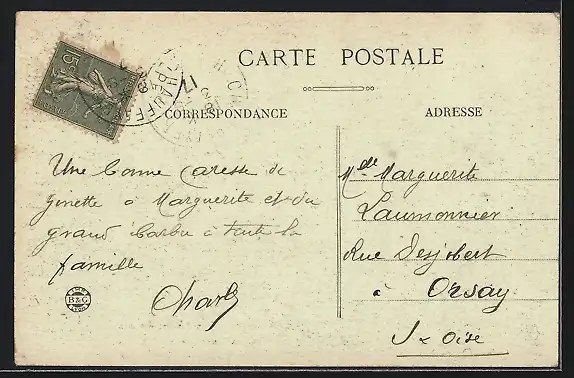 CARTE POSTALE
CORRESPONDANCE
ADRESSE
15c
17
Une bonne caresse de
Ginette à Marguerite et du
grand barbu à toute la
famille
Charles
B&G
Mdle Marguerite
Laumonnier
Rue Desjobert
à Orsay
S & Oise